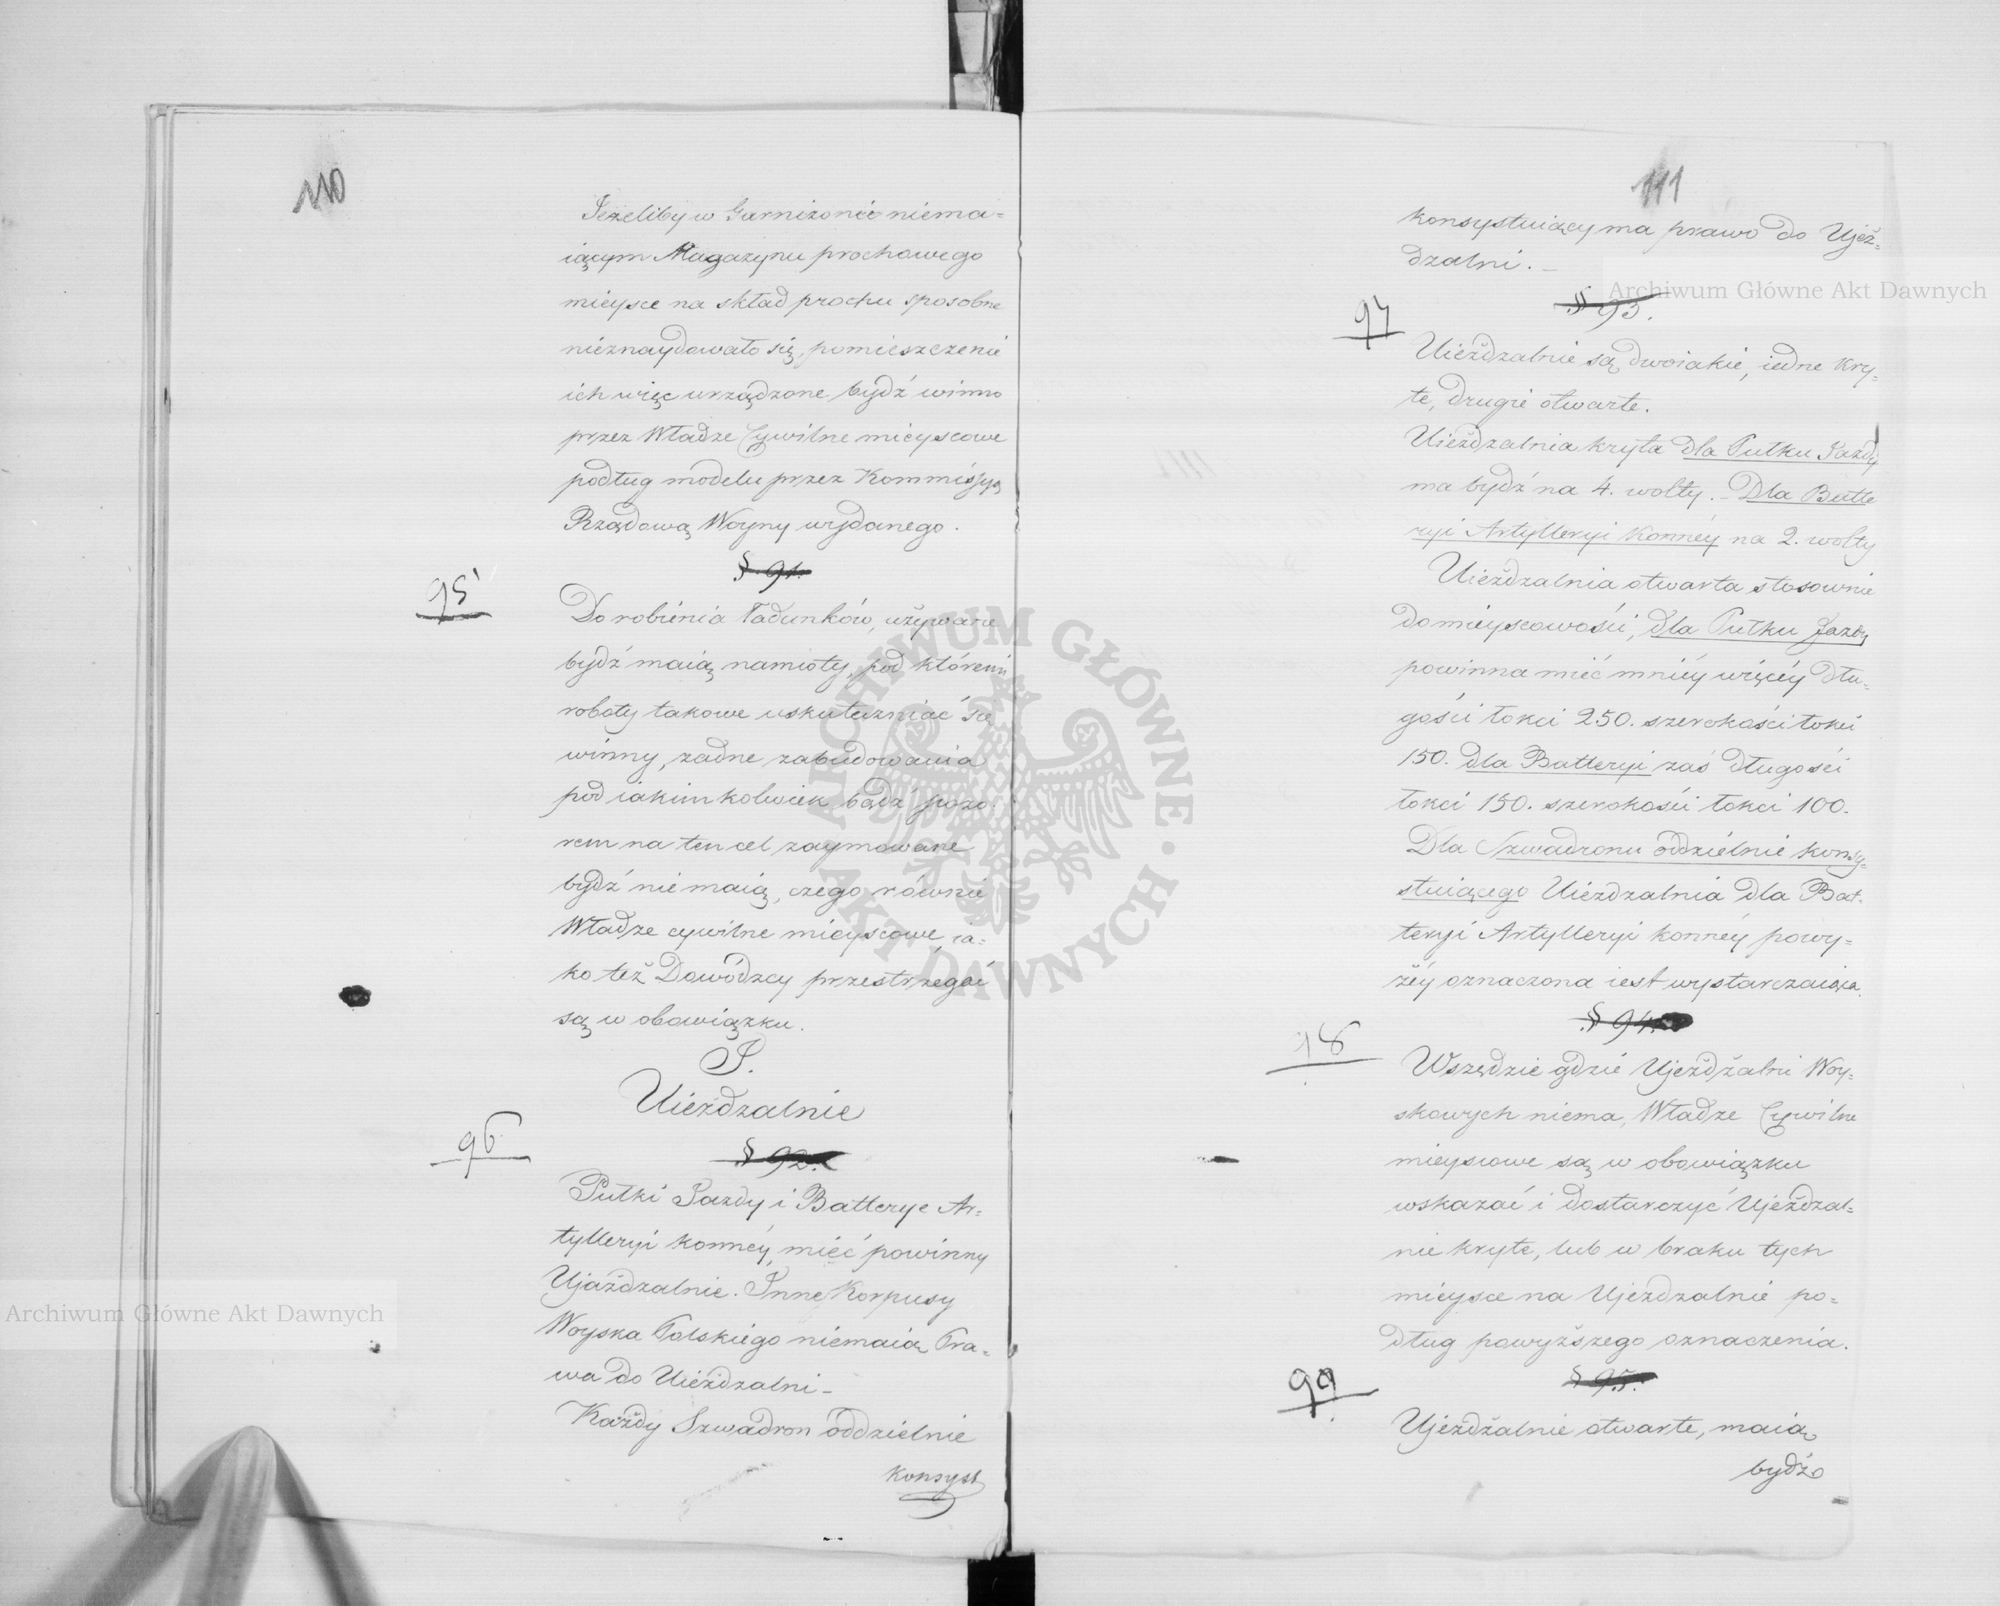 110
Jeżeliby w Garnizonie niema=
iącym Magazynu prochowego
mieysce na skład prochu sposobne
nieznaydowało się, pomieszczenie
ich więc urządzone bydź winno
przez Władze Cywilne mieyscowe
podług modelu przez Kommissyą
Rządową Woyny wydanego.
§ 91.
95
Do robienia Ładunków, używane
bydź maią namioty, pod któremi
roboty takowe uskuteczniać się
winny, żadne zabudowania
pod iakimkolwiek bądź pozo
rem na ten cel zaymowane
bydź nie maią, czego równie
Władze cywilne mieyscowe ia=
ko też Dowódzcy przestrzegać
są w obowiązku.
P.
Uieżdzalnie
§ 92.
96
Pułki Jazdy i Batterye Ar=
tylleryi konnéy, mieć powinny
Ujażdzalnie. Inne Korpusy
Woyska Polskiego niemaią Pra=
wa do Uieżdzalni -
Każdy Szwadron oddzielnie
Konsyst
111
konsystuiący ma prawo do Ujeż=
dzalni. -
§ 93.
97
Uieżdzalnie są dwoiakie, iedne kry=
te, drugie otwarte.
Uieżdzalnia kryta dla Pułku Jazdy
ma bydź na 4. wolty. - Dla Batte
ryi Artylleryi Konnéy na 2. wolty
Uieżdzalnia otwarta stosownie
do mieyscowości, dla Pułku Jazdy
powinna mieć mniéy więcéy dłu=
gości łokci 250. szerokości łokci
150. dla Batteryi zaś długości
łokci 150. szerokości łokci 100.
Dla Szwadronu oddzielnie konsy=
stuiącego Uieżdzalnia dla Bat=
teryi Artylleryi konnéy powy=
żéy oznaczona iest wystarczaiąca.
§ 94.
98
Wszędzie gdzie Ujeżdżalni Woy=
skowych niema, Władze Cywilne
mieyscowe są w obowiązku
wskazać i dostarczyć Ujeżdzal=
nie kryte, lub w braku tych
mieysce na Ujeżdzalnie po=
dług powyższego oznaczenia.
§ 95.
99
Ujeżdżalnie otwarte, maią
bydź
Archiwum Główne Akt Dawnych
Archiwum Główne Akt Dawnych
ARCHIWUM GŁÓWNE AKT DAWNYCH